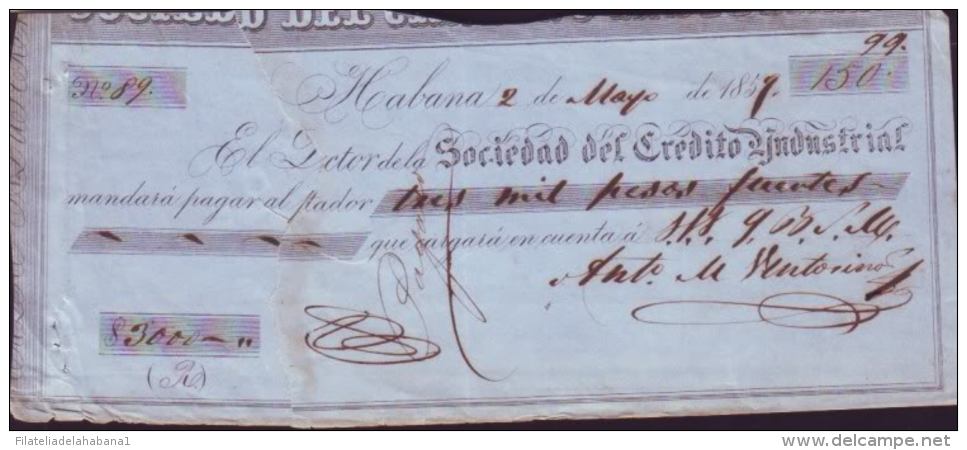 SOCIEDAD DEL
99.
No. 89.
150.
Habana 2 de Mayo de 1859.
El Dctor de la Sociedad del Crédito Yndustrial
mandará pagar al ptador tres mil pesos fuertes
que cargará en cuenta á S.S. q. B. S. M.
Anto. M Ventosino
Páguese
$ 3000 — "
(R)
Filateliadelahabana1
delcampe.net